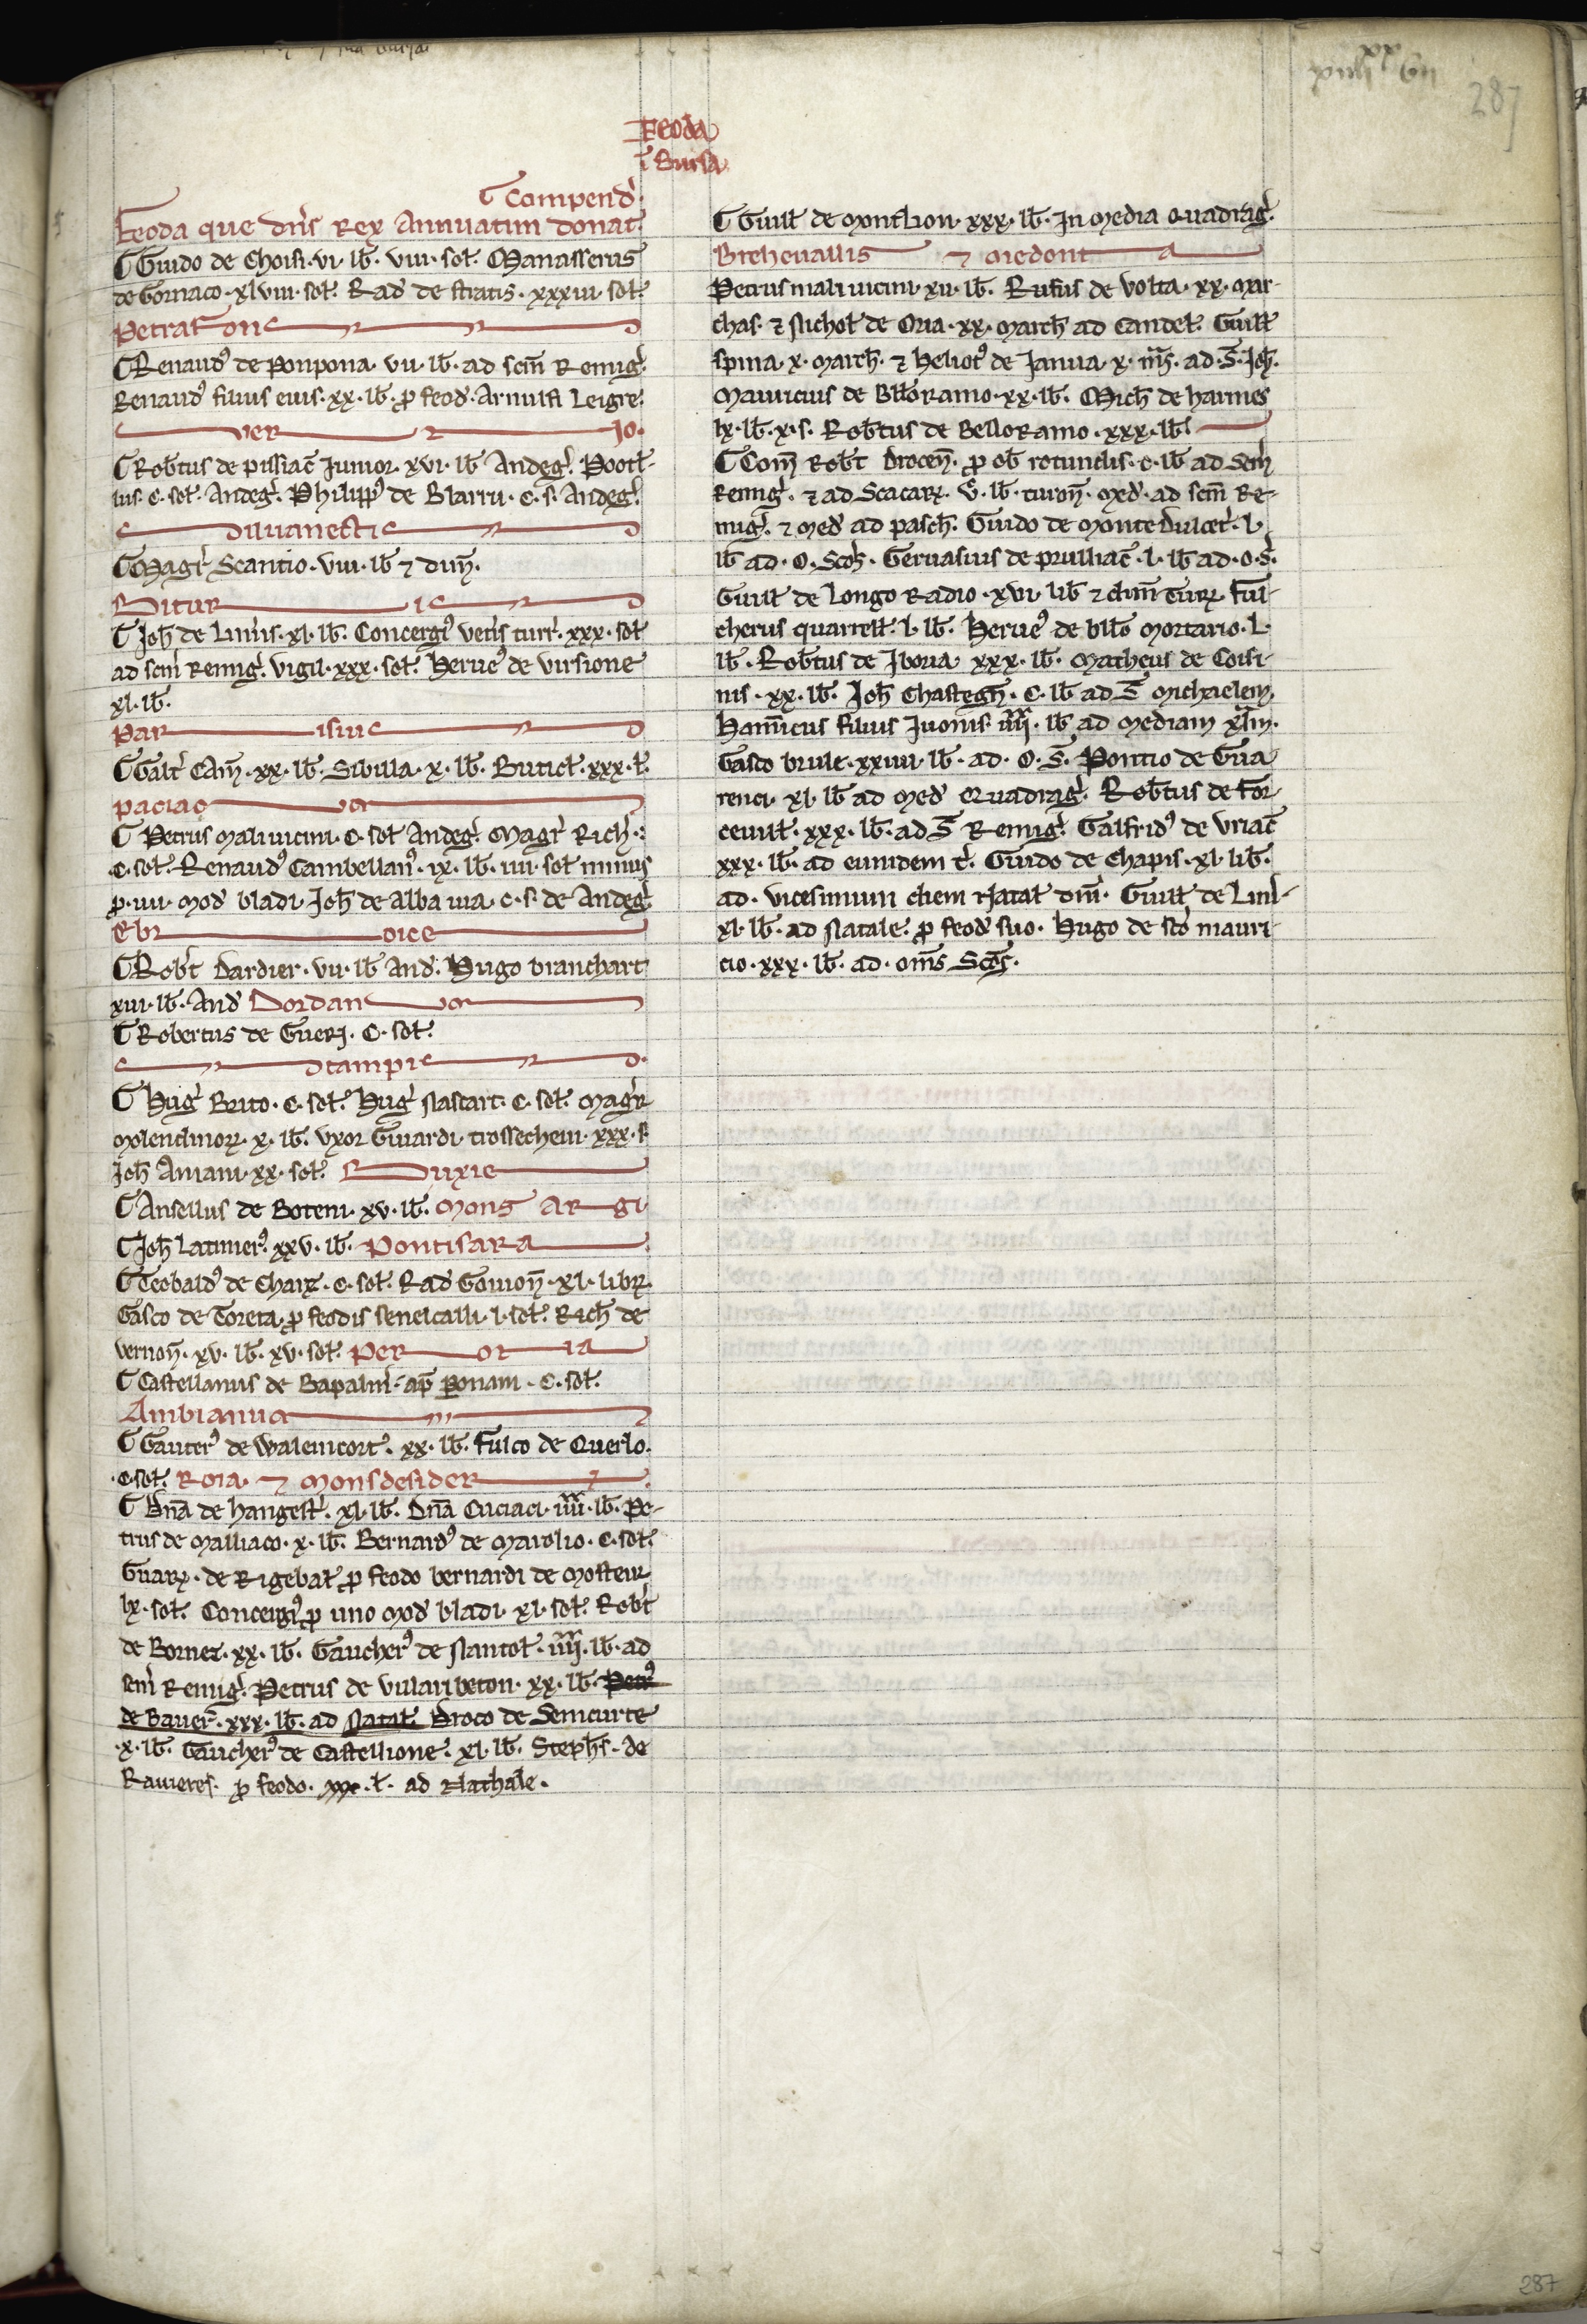 287
Feoda
ī Bursa
Compend̄.
Feoda que dn̄s Rex Annuatim donat.
Guido de Choisi. vi. lb̄. viii. sol̄. Manasserus
de Gornaco. xlviii. sol̄. Rad̄ de stratis. xxxiii. sol̄.
Petrafons
Renaud⁹ de Ponpona. vii. lb̄. ad sc̄m Remiḡ.
Renaud⁹ filius eius. xx. lb̄. ꝓ feod̄. Arnulfi Leigre.
ver no.
Rob̄tus de pissiac̄ Junior. xvi. lb̄ Andeḡ.
lus. C. sol̄. Andeḡ. Philipp⁹ de Blarru. C. s. Andeḡ.
Siluanectis
Magr̄ Scantio. viii. lb̄ ⁊ dim̄.
Bituris
Joh̄ de Lineris. xl. lb̄. Concerg⁹ vet̄is turr̄. xxx. sol̄
ad sc̄m Remiḡ. vigil. xxx. sol̄. Herue⁹ de virsione
xl. lb̄.
Par isius
Galt̄ Cam̄. xx. lb̄. Sibilla. x. lb̄. Buticl̄. xxx. l̄.
paciac
Petrus malivicini. C. sol̄ Andeḡ. Magr̄ Rich̄.
C. sol̄. Renaud⁹ Cambellan⁹. ix. lb̄. iiii. sol̄ minus
ꝓ. iii. mod̄ bladi. Joh̄ de Alba uia. c. s. de Andeḡ.
Ebr oice
Rob̄t Dardier. vii. lb̄ And̄. Hugo branchart
xiii. lb̄. And̄ Dordan
Robertus de Gueri. C. sol̄.
Stampis
Huḡ Brito. C. sol̄. Huḡ Nastart. C. sol̄. Magr̄
Molendinoꝝ. x. lb̄. vxor Guiardi trossechein. xxx. s.
Joh̄ Aniani. xx. sol̄. Buxie
Ansellus de Boteni. xv. lb̄. Mons Argi
Joh̄ Latiner⁹. xxv. lb̄. Pontisara
Teobald⁹ de Charꝝ. C. sol̄. Rad̄ Gouion̄. xl. libꝝ.
Gasco de Toreta. ꝓ feodis senescalli. l. sol̄. Rich̄ de
vernon̄. xv. lb̄. xv. sol̄. Per on ia
Castellanus de Bapalm̄. ap̄ ꝑonam. C. sol̄.
Ambianis
Gauter⁹ de Walemcort. xx. lb̄. Fulco de Querlo.
C. sol̄. Roia. ⁊ Monsdesider
Dn̄a de hangest. xl. lb̄. Dn̄a Cuciaci. iiii^xx. lb̄. Pe-
trus de Malliaco. x. lb̄. Bernard⁹ de Marolio. C. sol̄.
Guarꝝ. de Rigebat ꝓ feodo bernardi de Mosteur
lx. sol̄. Concerg⁹ ꝓ uno mod̄ bladi. xl. sol̄. Rob̄t
de Bornez. xx. lb̄. Gaucher⁹ de Nantol̄. iiii^xx. lb̄. ad
sc̄m Remiḡ. Petrus de Villaribeton. xx. lb̄. Petr⁹
de Bauer̄. xxx. lb̄. ad Natal̄. Droco de Semcurte
x. lb̄. Gaucher⁹ de Castellione. xl. lb̄. Steph̄s. de
Rauieres. ꝓ feodo. xxx. l̄. ad Nathale.
Guill̄ de Montlion. xxx. lb̄. In media Quadraḡ.
Breheuallis ⁊ Medont a
Petrus malivicini. xii. lb̄. Rufus de volta. xx. mar-
chas. ⁊ Nichol̄ de Oria. xx. march̄ ad Candel̄. Guill̄
spina. x. march̄. ⁊ Heliot⁹ de Janua. x. m̄s. ad. S̄. Joh̄.
Mauricius de Bl̄loramo. xx. lb̄. Mich̄ de harmes
lx. lb̄. x. s. Rob̄tus de Belloramo. xxx. lb̄.
Com̄ Rob̄t Drocen̄. ꝓ ob̄ rotundis. c. lb̄ ad Sc̄m
Remiḡ. ⁊ ad Scacarꝝ. v^c. lb̄. turon̄. med̄. ad sc̄m Re-
miḡ. ⁊ med̄ ad pasch̄. Guido de monte Dulcet̄. l.
lb̄ ad. O. Scōꝝ. Geruasius de prulliac̄. l. lb̄ ad. o. s̄.
Guill̄ de Longo Radio. xvi. lib̄ ⁊ dim̄ Turꝝ. Ful-
cherus quarrell̄. l. lb̄. Herue⁹ de bl̄lo Mortario. L.
lb̄. Rob̄tus de Iboria. xxx. lb̄. Matheus de Coisi-
nis. xx. lb̄. Joh̄ Chastegn̄. C. lb̄ ad S̄ Michaelem.
Hanricus filius Iuonis. iiii^xx. lb̄ ad mediam xl^am.
Gasco brule. xxiiii. lb̄. ad. O. S̄. Pontio de Gua
renci. xl. lb̄ ad med̄ Quadraḡ. Rob̄tus de Tor-
ceuill̄. xxx. lb̄. ad S̄ Remiḡ. Galfrid⁹ de Vriac̄
xxx. lb̄. ad eumdem t̄. Guido de Chapis. xl. lib̄.
ad. vicesimum diem Natal̄ dn̄i. Guill̄ de Lini-
xl. lb̄. ad Natale. ꝓ feod̄ suo. Hugo de sc̄o mauri-
cio. xxx. lb̄. ad. om̄s Sc̄os.
287